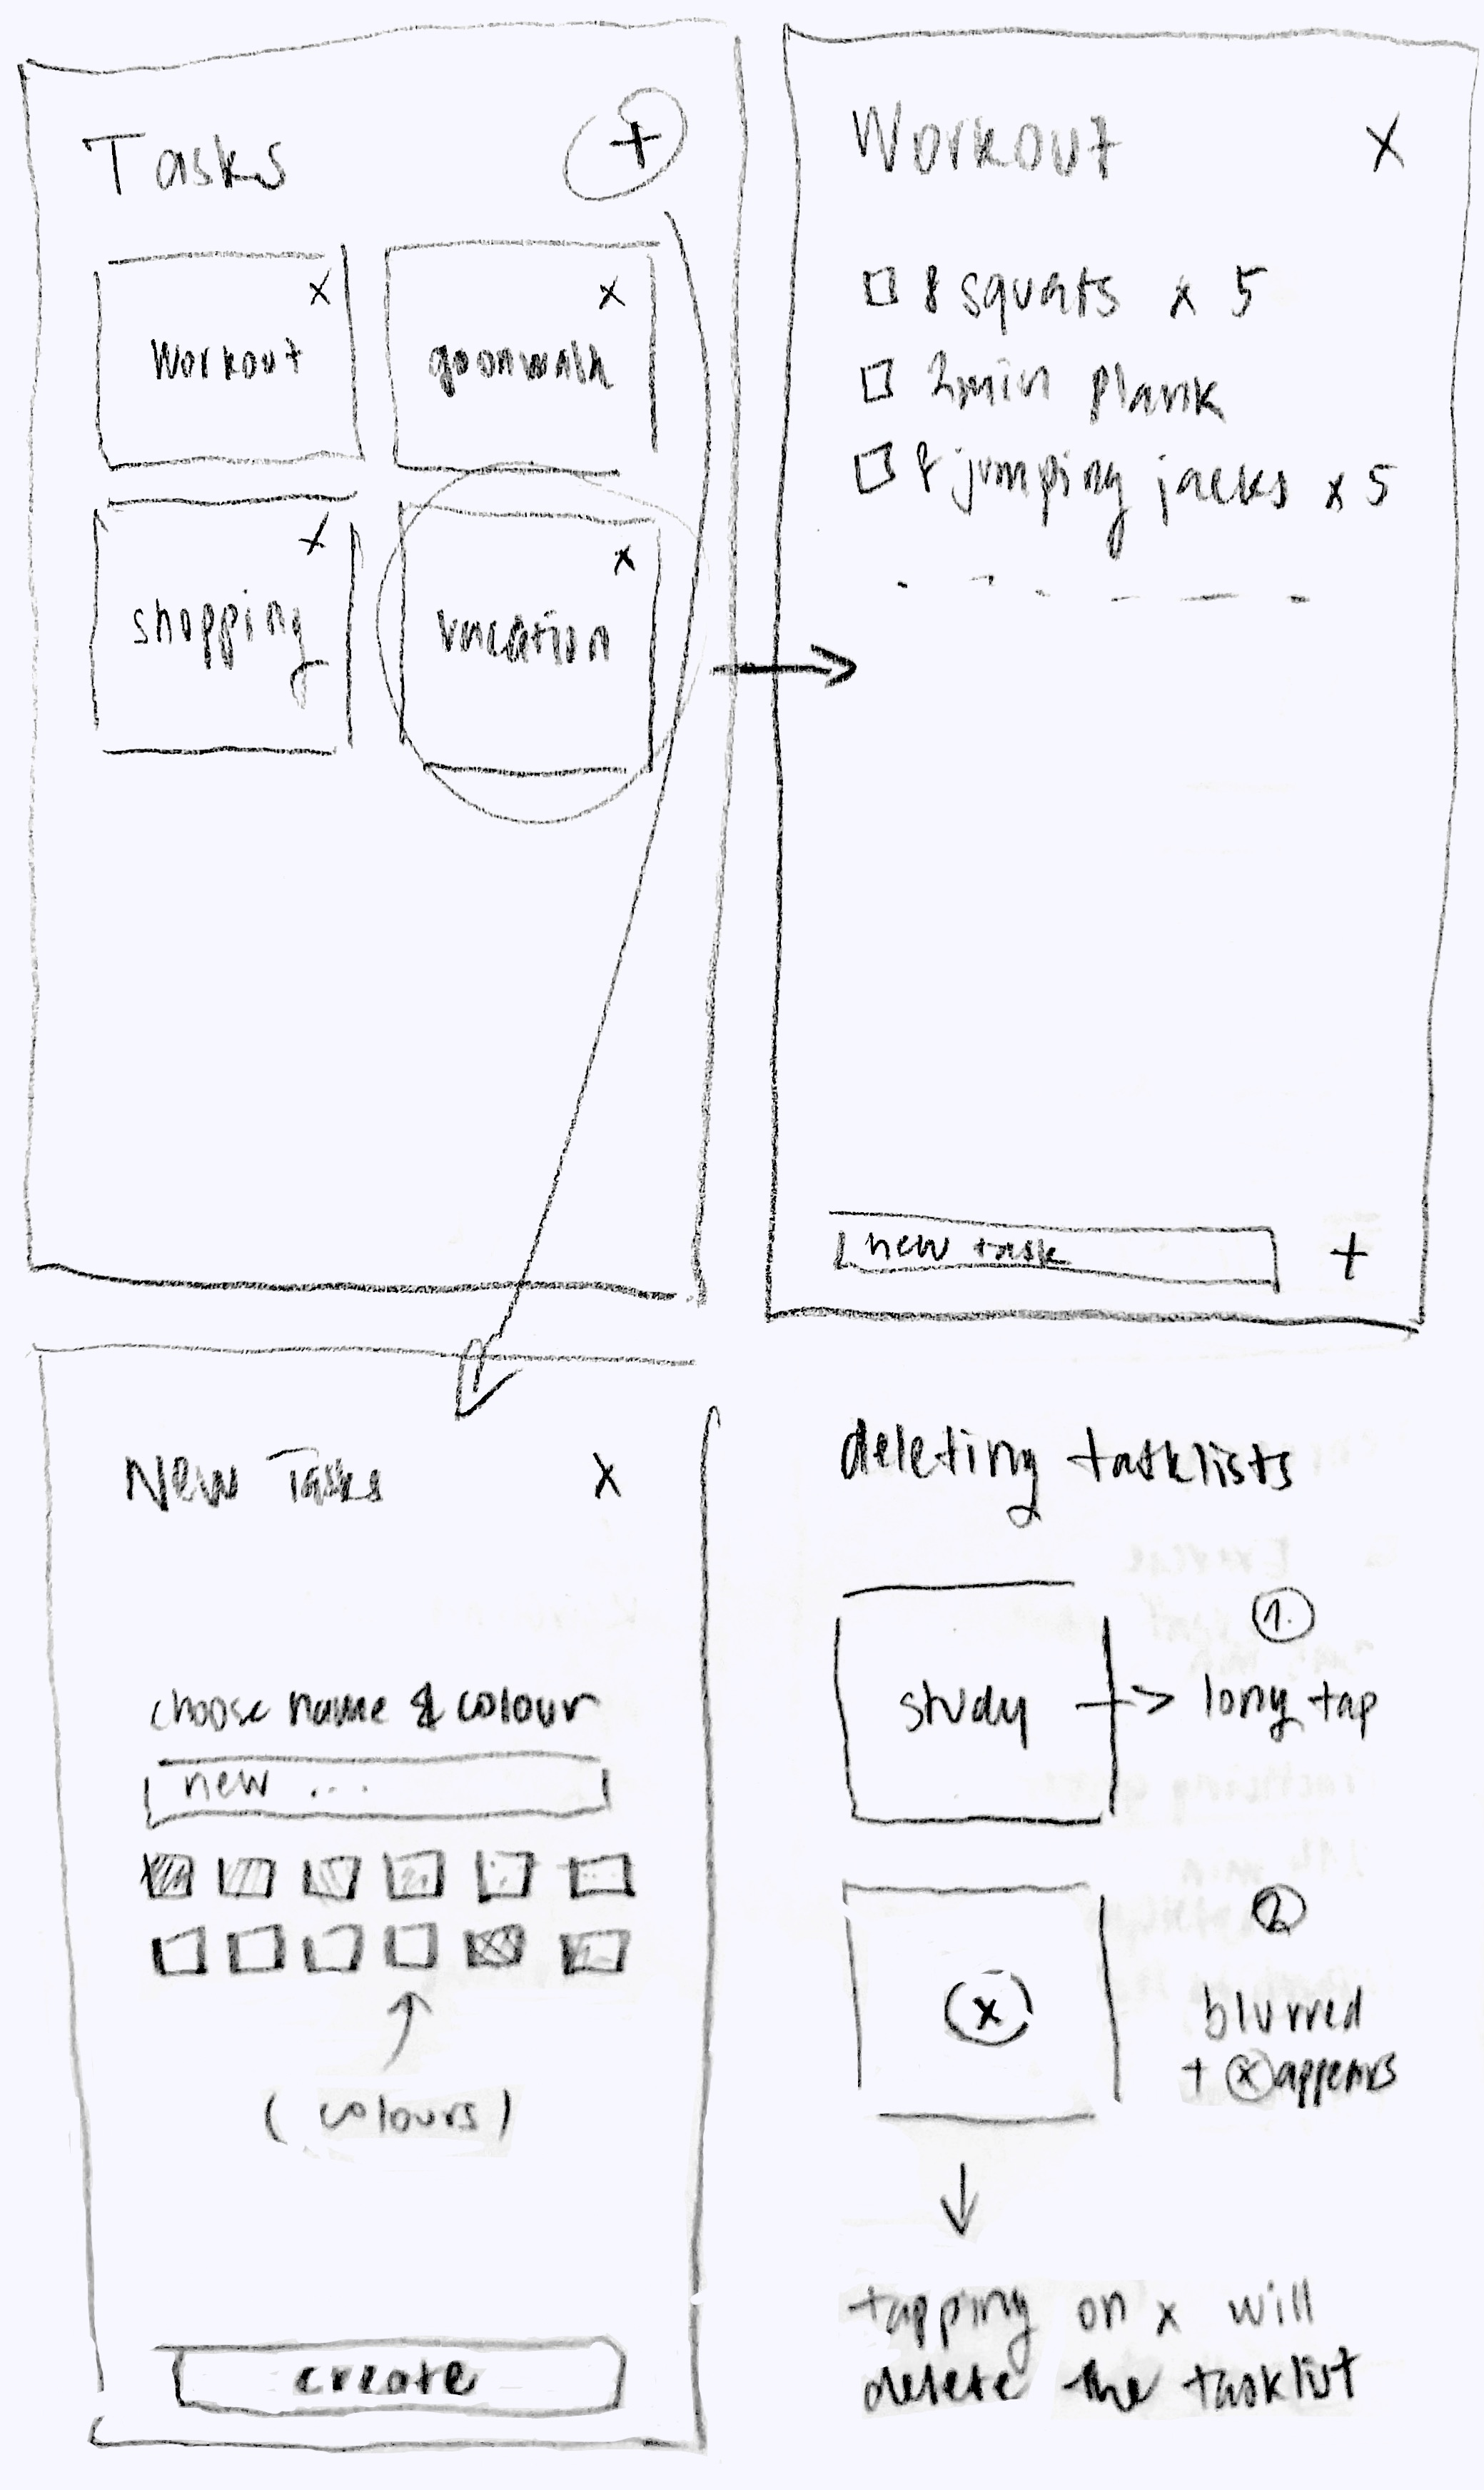 Tasks +
Workout x
goonwalk x
shopping x
vacation x
Workout x
8 squats x 5
2min plank
8 jumping jacks x 5
new task +
New Tasks x
choose name & colour
new ...
(colours)
create
deleting tasklists
study -> 1. long tap
x
2
blurred
+ x appears
tapping on x will
delete the tasklist